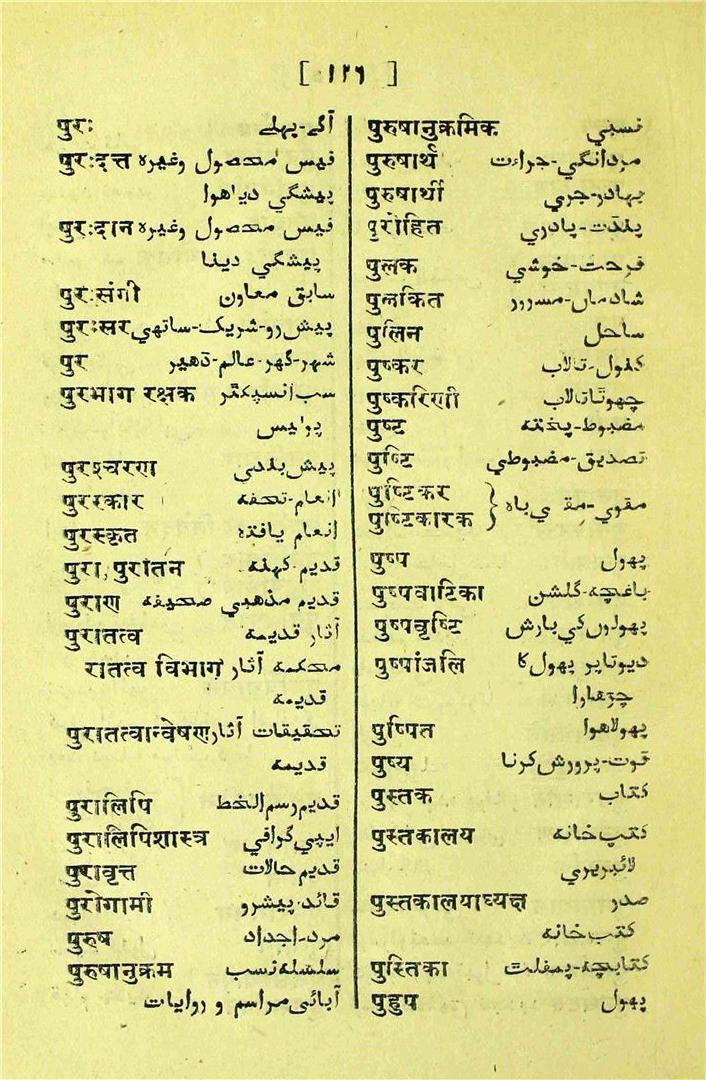 [ ١٢٦ ]
पुरः آگے-پہلے
पुरःदत्त فیس محصول وغیرہ
پیشگی دیا ہوا
पुरःदान فیس محصول وغیرہ
پیشگی دینا
पुरःसंगी سابق معاون
पुरःसर پیش رو-شریک-ساتھی
पुर شہر-گھر-عالم-ڈھیر
पुरभाग रक्षक سب انسپکٹر
پولیس
पुरश्चरण پیش بندی
पुरस्कार انعام-تحفہ
पुरस्कृत انعام یافتہ
पुरा, पुरातन قدیم-کہنہ
पुराण قدیم مذہبی صحیفہ
पुरातत्व آثار قدیمہ
रातत्व विभाग محکمہ آثار
قدیمہ
पुरातत्वान्वेषण تحقیقات آثار
قدیمہ
पुरालिपि قدیم رسم الخط
पुरालिपिशास्त्र ایپی گرافی
पुरावृत्त قدیم حالات
पुरोगामी قائد-پیشرو
पुरुष مرد-اجداد
पुरुषानुक्रम سلسلہ نسب
آبائی مراسم و روایات
पुरुषानुक्रमिक نسبی
पुरुषार्थ مردانگی-جراءت
पुरुषार्थी بہادر-جری
पुरोहित پنڈت-پادری
पुलक فرحت-خوشی
पुलकित شادماں-مسرور
पुलिन ساحل
पुष्कर کنول-تالاب
पुष्करिणी چھوٹا تالاب
पुष्ट مضبوط-پختہ
पुष्टि تصدیق-مضبوطی
पुष्टिकर
पुष्टिकारक } مقوی-مقوی باہ
पुष्प پھول
पुष्पवाटिका باغچہ-گلشن
पुष्पवृष्टि پھولوں کی بارش
पुष्पांजलि دیوتا پر پھول کا
چڑھاوا
पुष्पित پھولا ہوا
पुष्य قوت-پرورش کرنا
पुस्तक کتاب
पुस्तकालय کتب خانہ
لائبریری
पुस्तकालयाध्यक्ष صدر
کتب خانہ
पुस्तिका کتابچہ-پمفلٹ
पुहुप پھول